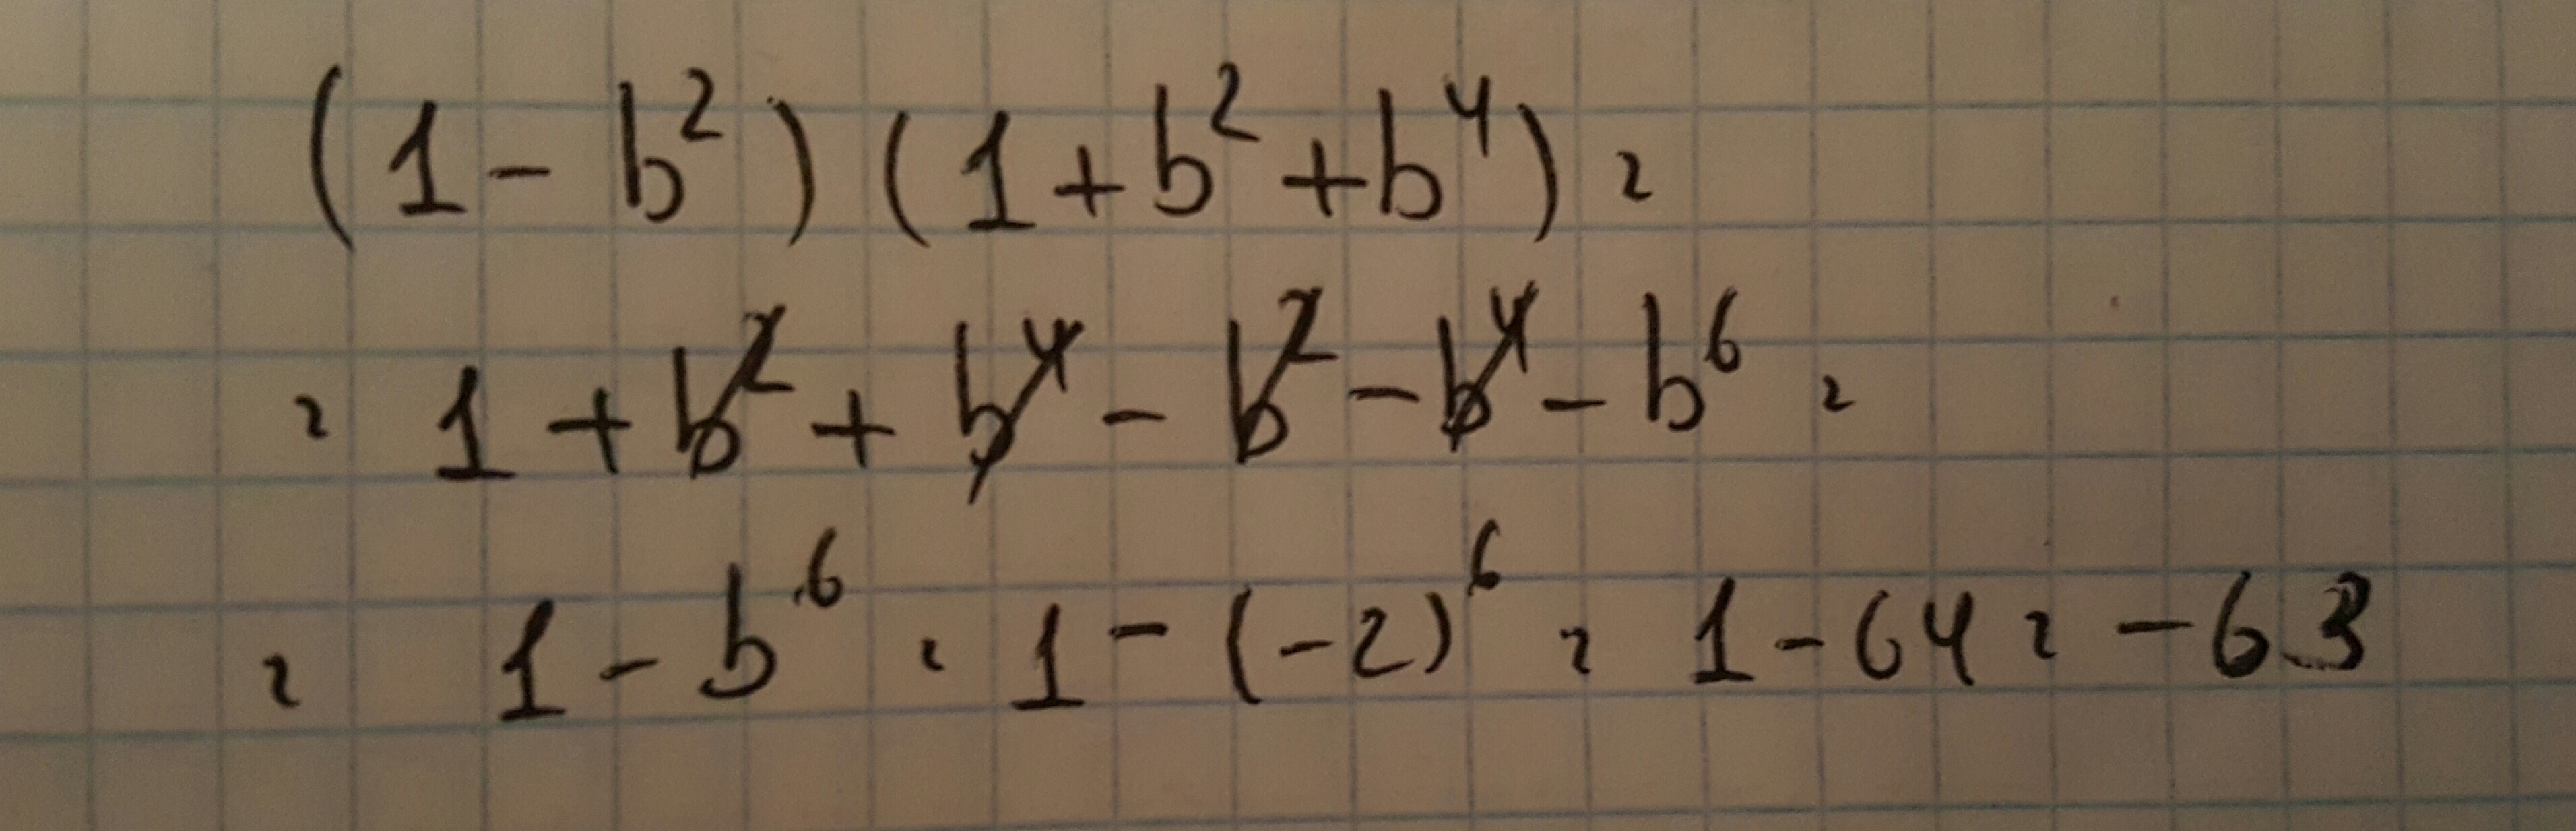 (1 - b²) (1 + b² + b⁴) =
= 1 + b² + b⁴ - b² - b⁴ - b⁶ =
= 1 - b⁶ = 1 - (-2)⁶ = 1 - 64 = -63